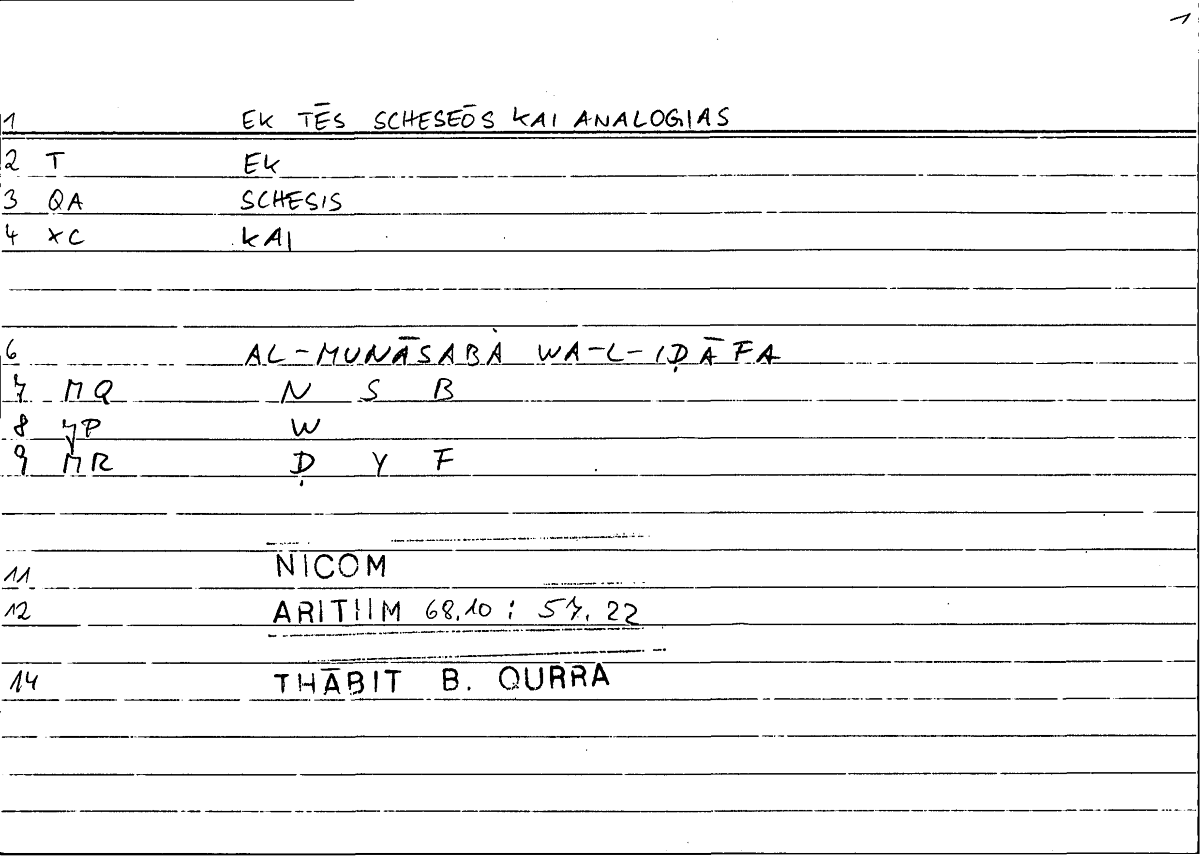 1
1 EK TĒS SCHESEŌS KAI ANALOGIAS
2 T EK
3 QA SCHESIS
4 XC KAI
6 AL-MUNĀSABA WA-L-IḌĀFA
7 MQ N S B
8 YP W
9 MR Ḍ Y F
11 NICOM
12 ARITIIM 68.10 : 57.22
14 THĀBIT B. QURRA